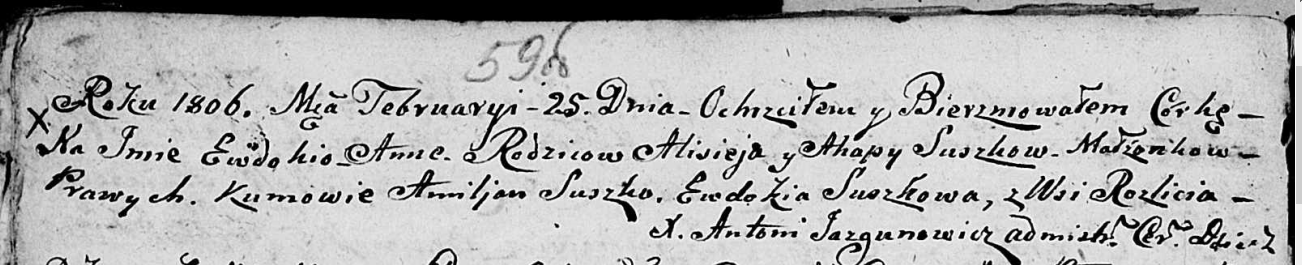 598
X Roku 1806. Mca Februaryi - 25. Dnia - Ochrzciłem y Bierzmowałem Corkę -
Na Imie Ewdokio - Anne. Rodzicow Alisieja y Ahapy Suszkow - Małżonkow -
Prawych. Kumowie Amiljan Suszko. Ewdokia Suszkowa, z Wsi Rozlicia -
X. Antoni Jazgunowicz admistr. Cer.